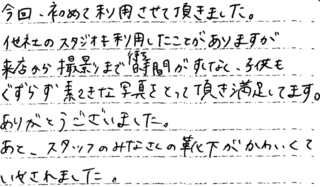 今回、初めて利用させて頂きました。
他社のスタジオも利用したことがありますが
来店から撮影まで待ち時間が少なく、子供も
ぐずらず素てきな写真をとって頂き満足してます。
ありがとうございました。
あと、スタッフのみなさんの靴下がかわいくて
いやされました。